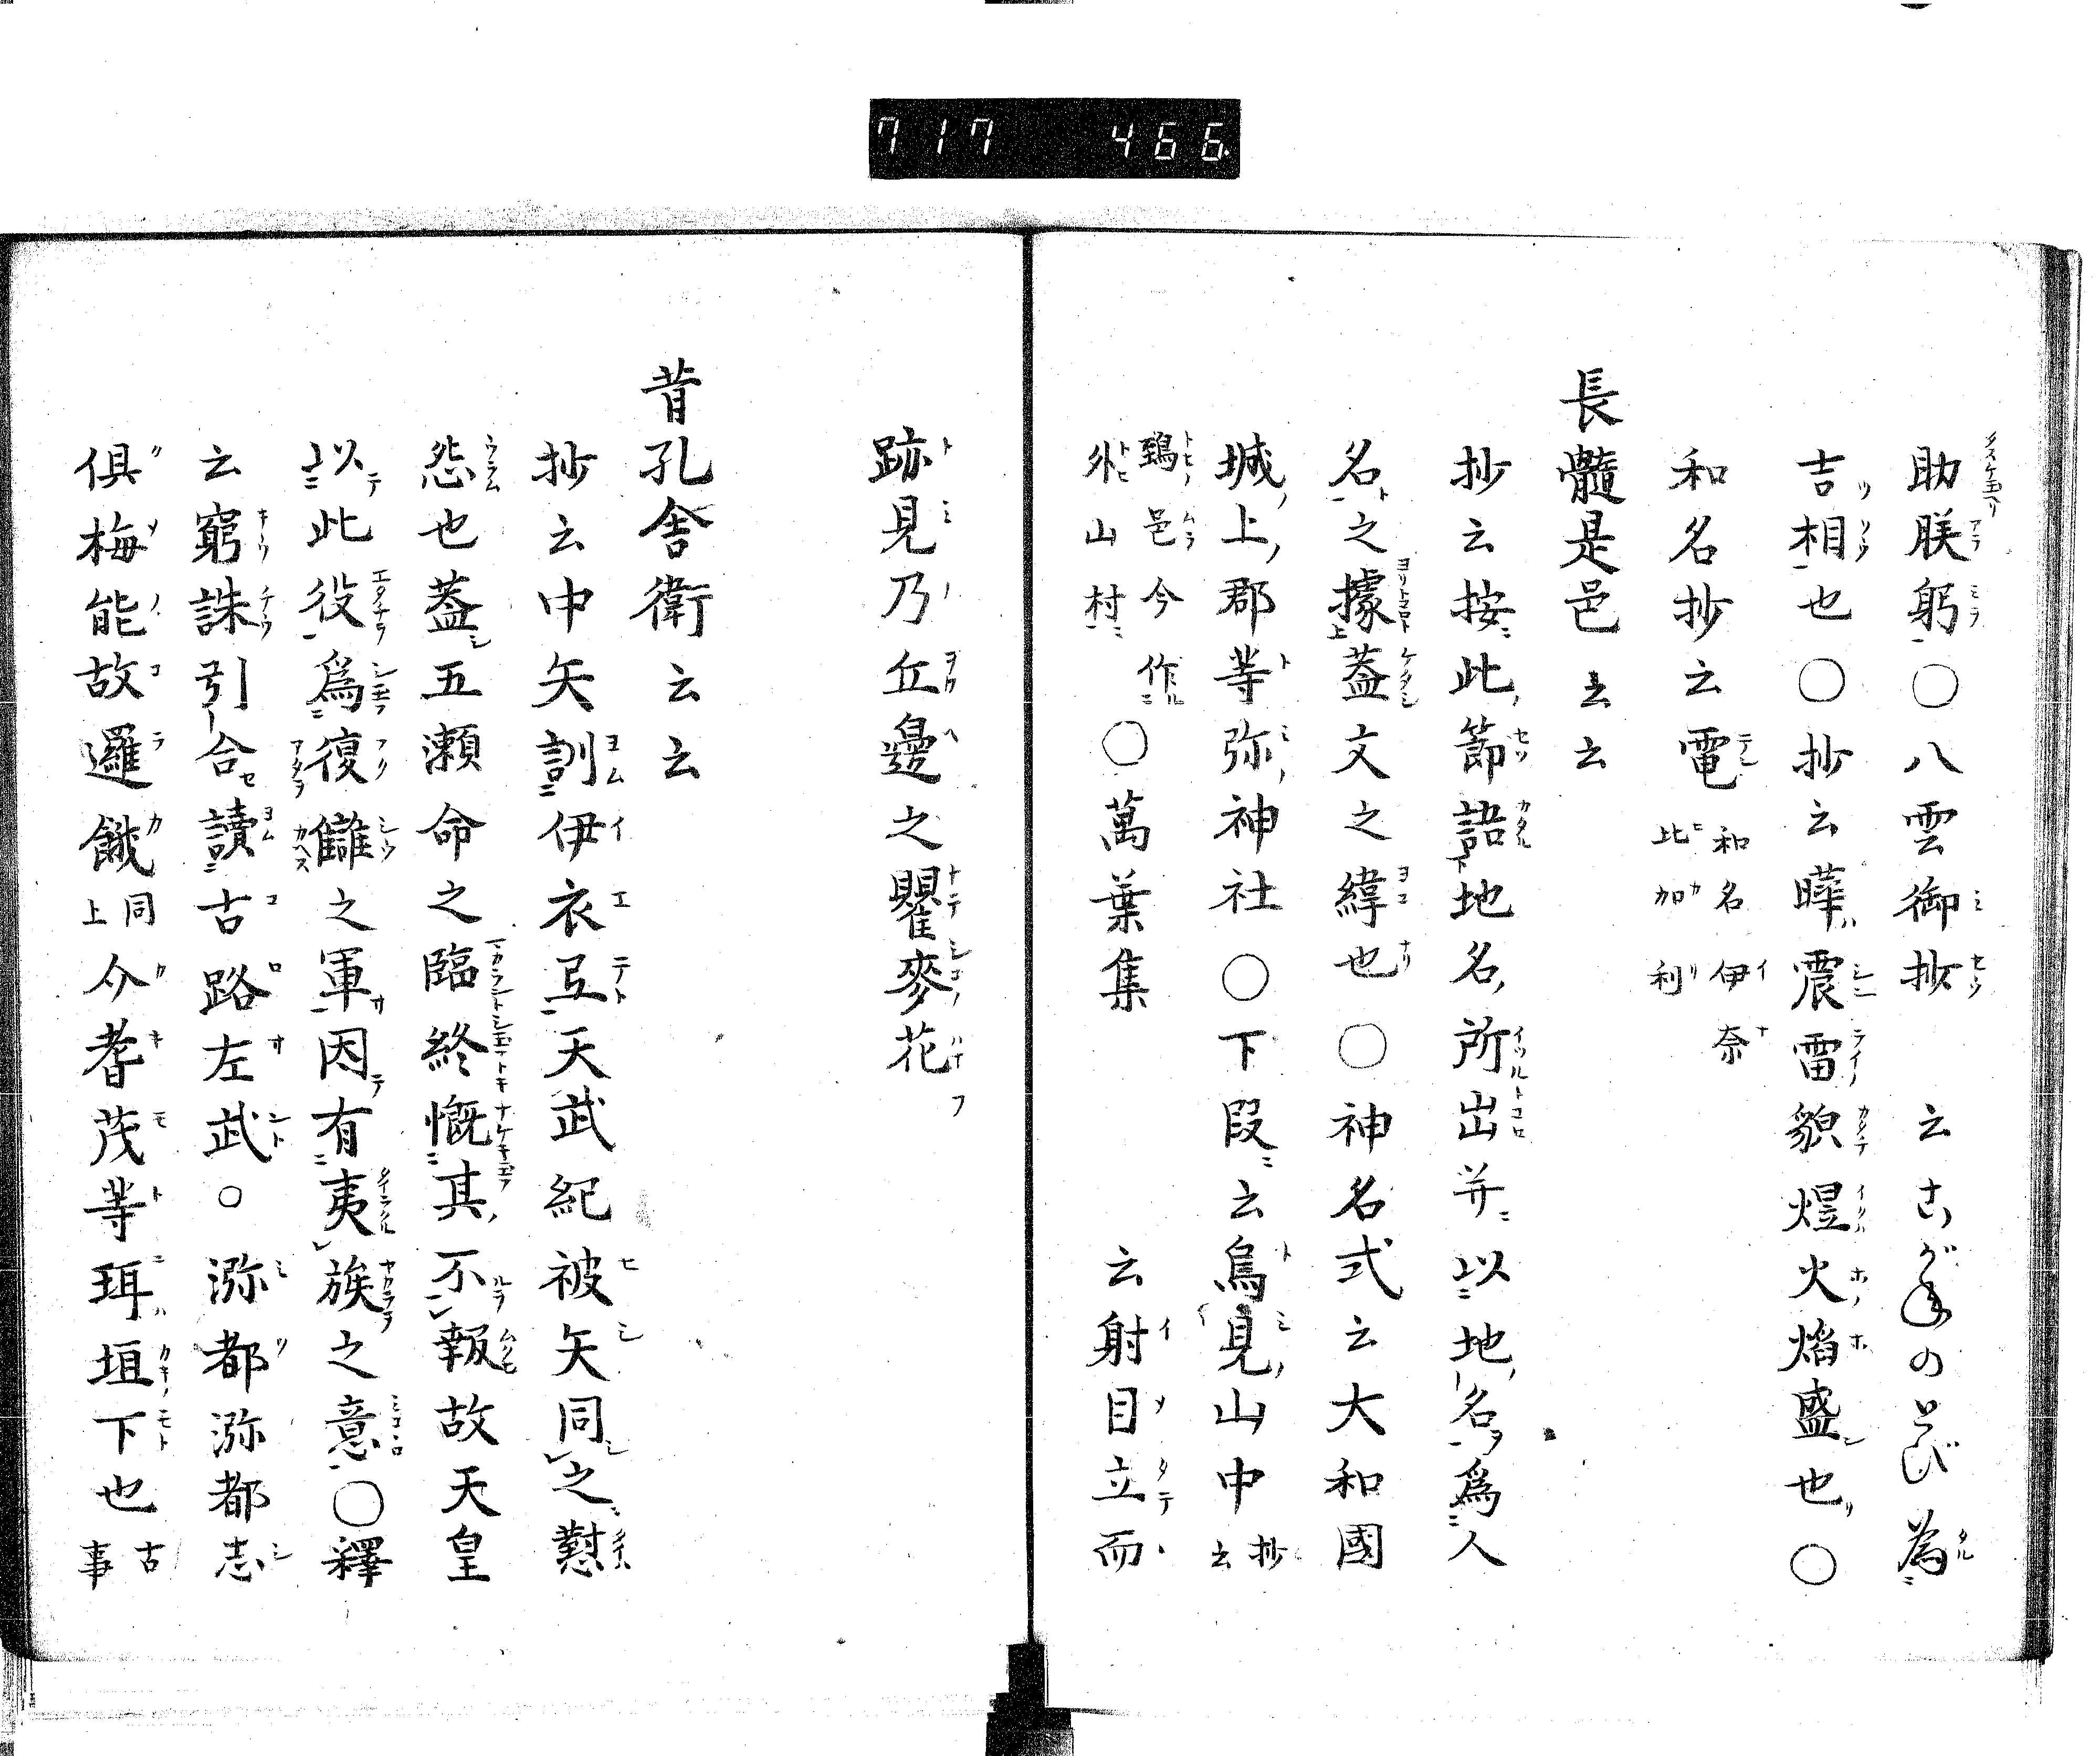 717 466
助朕躬〇八雲御抄 云こがねのとび為
吉相也〇抄云曄震雷貌煜火焰盛也〇
和名抄云電和名伊奈比加利
長髓是邑云云
抄云按此節語地名所出并以地名爲人
名之據蓋文之緯也〇神名式云大和國
城上郡等弥神社〇下段云鳥見山中抄云
鵄邑今作外山村〇萬葉集 云射目立而
跡見乃丘邊之瞿麥花
昔孔舍衛云云
抄云中矢訓伊衣弖天武紀被矢同之懟
怨也蓋五瀬命之臨終慨其不報故天皇
以此役爲復讎之軍因有夷族之意〇釋
云窮誅引合讀古路左武〇弥都弥都志
倶梅能故邏餓同上介耆茂等珥垣下也古事